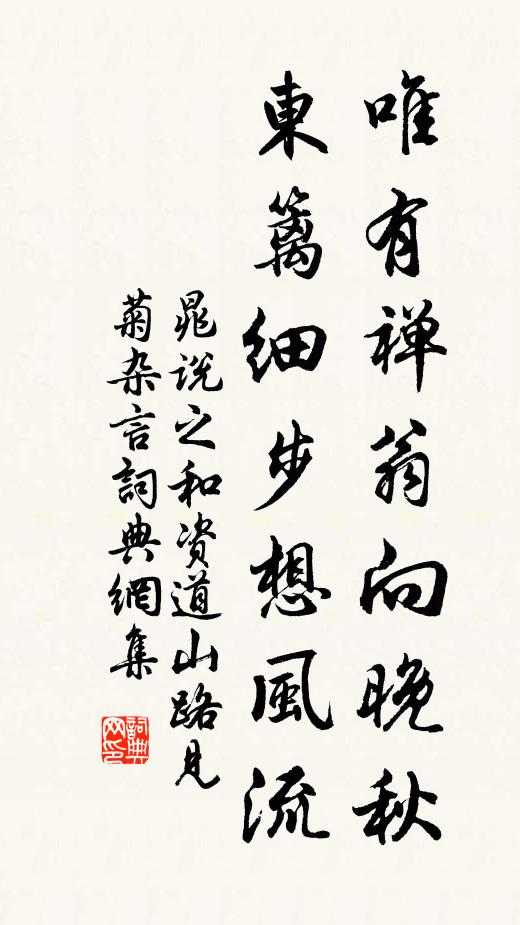 唯有禅翁向晚秋
東篱細步想風流
晁说之和资道山路見
菊杂言詞典網集
詞典
网印